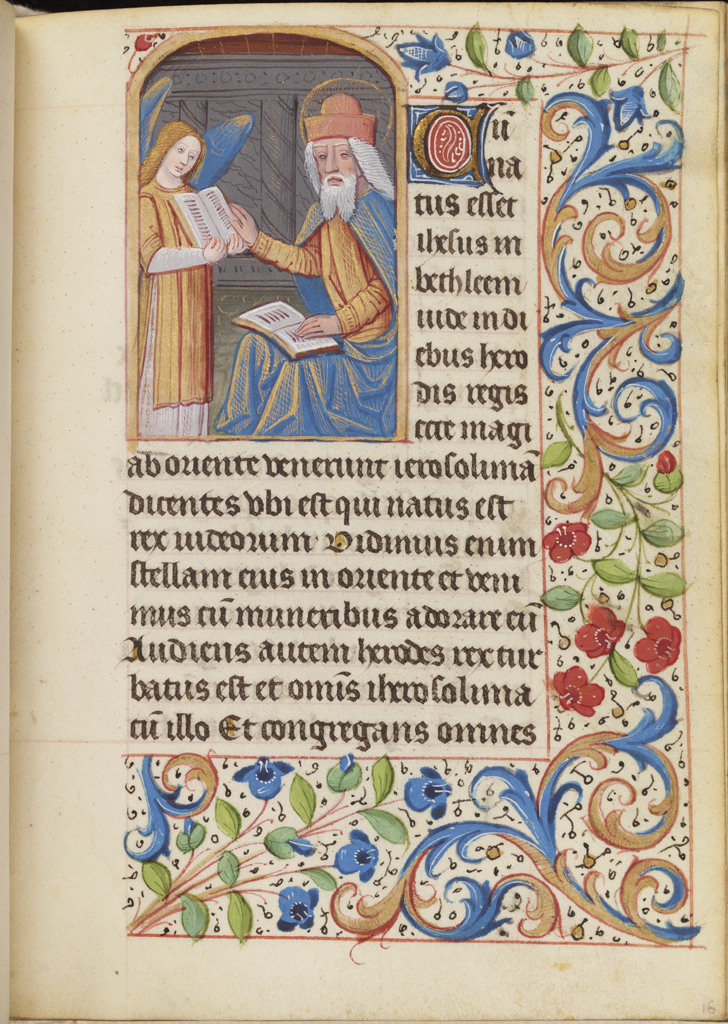 Cū
na
tus esset
ihesus in
bethleem
iude in di
ebus hero
dis regis
ecce magi
ab oriente venerunt ierosolimā
dicentes vbi est qui natus est
rex iudeorum Vidimus enim
stellam eius in oriente et veni
mus cū muneribus adorare eū
Audiens autem herodes rex tur
batus est et omīs iherosolima
cū illo Et congregans omnes
16